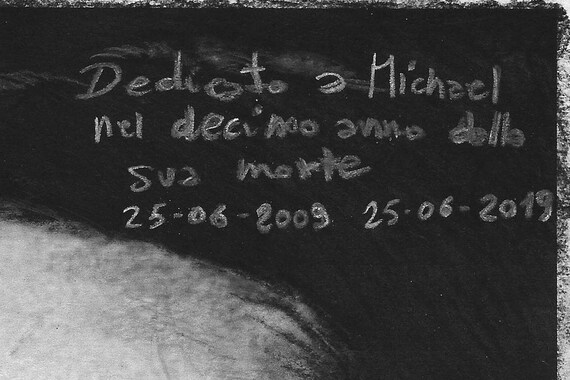 Dedicato a Michael
nel decimo anno della
sua morte
25-06-2009 25-06-2019